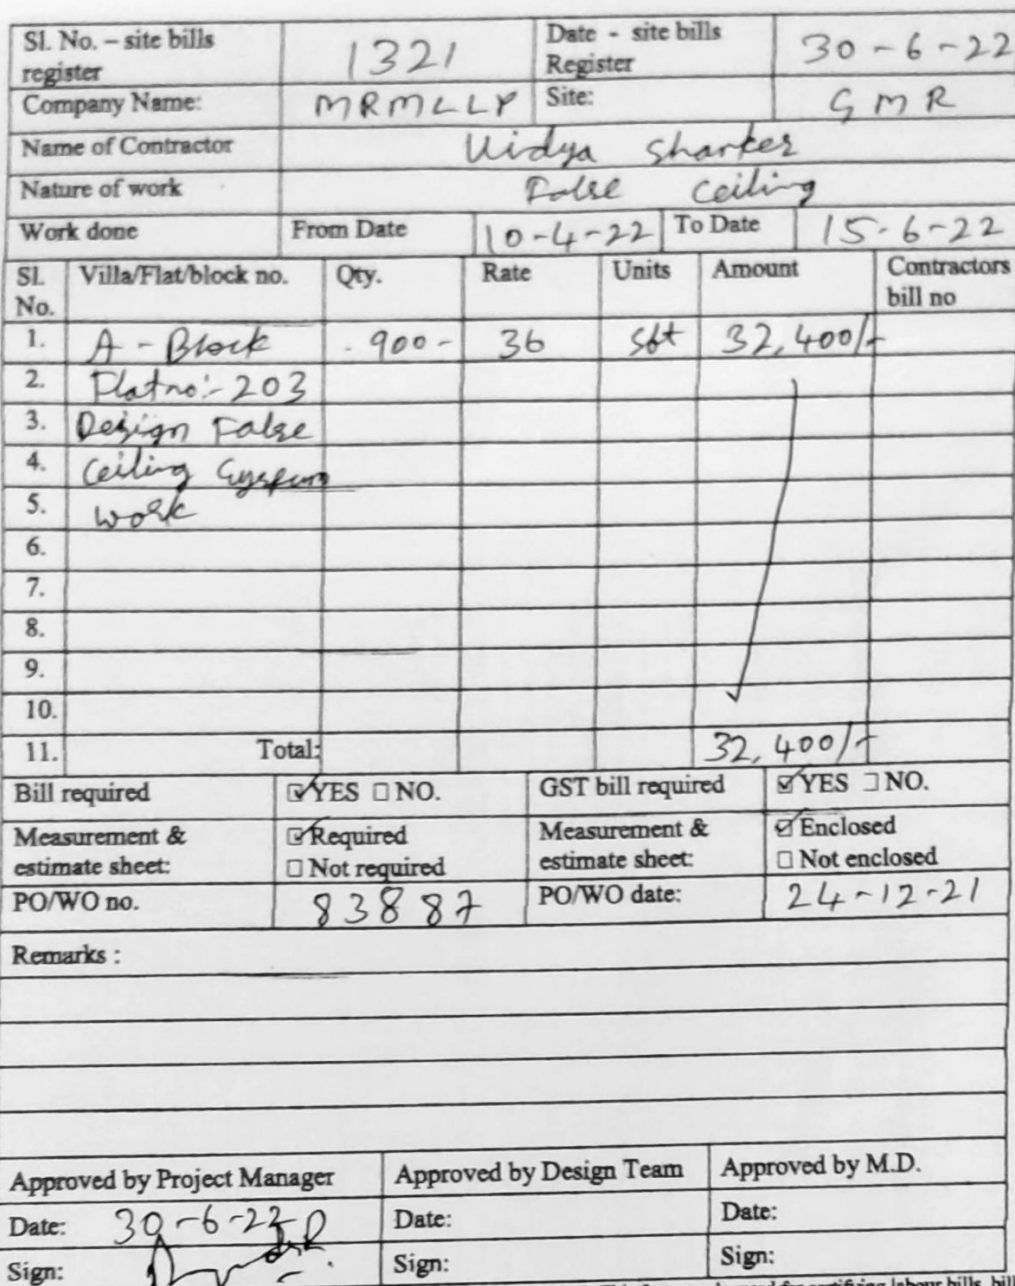 Sl. No. – site bills register 1321 Date - site bills Register 30-6-22
Company Name: MRMLLP Site: GMR
Name of Contractor Vidya Shanker
Nature of work False ceiling
Work done From Date 10-4-22 To Date 15-6-22
Sl. No. Villa/Flat/block no. Qty. Rate Units Amount Contractors bill no
1. A - Block 900 - 36 Sft 32,400/-
2. Flat no:- 203
3. Design False
4. Ceiling Gypsum
5. work
6.
7.
8.
9.
10.
11. Total: 32,400/-
Bill required ☑YES ☐NO. GST bill required ☑YES ☐NO.
Measurement & estimate sheet: ☑Required ☐Not required Measurement & estimate sheet: ☑Enclosed ☐Not enclosed
PO/WO no. 83887 PO/WO date: 24-12-21
Remarks :
Approved by Project Manager Approved by Design Team Approved by M.D.
Date: 30-6-22 Date: Date:
Sign: Sign: Sign: